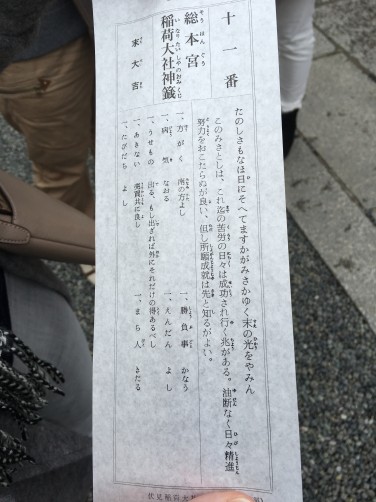 十一番
総本宮
そうほんぐう
稲荷大社神籤
いなりたいしゃのおみくじ
末大吉
たのしさもなほ日にそへてますかがみさかゆく末の光をやみん
このみさとしは、これ迄の苦労の日々は成功され行く兆がある。油断なく日々精進
努力をおこたらぬが良い、但し所願成就は先と知るがよい。
一、方がく 南の方よし
一、病気 なおる
一、うせもの 出る、もし出ざれば外にそれだけの得あるべし
一、あきない 売買共に良し
一、たびだち よし
一、勝負事 かなう
一、えんだん よし
一、まち人 きたる
伏見稲荷大